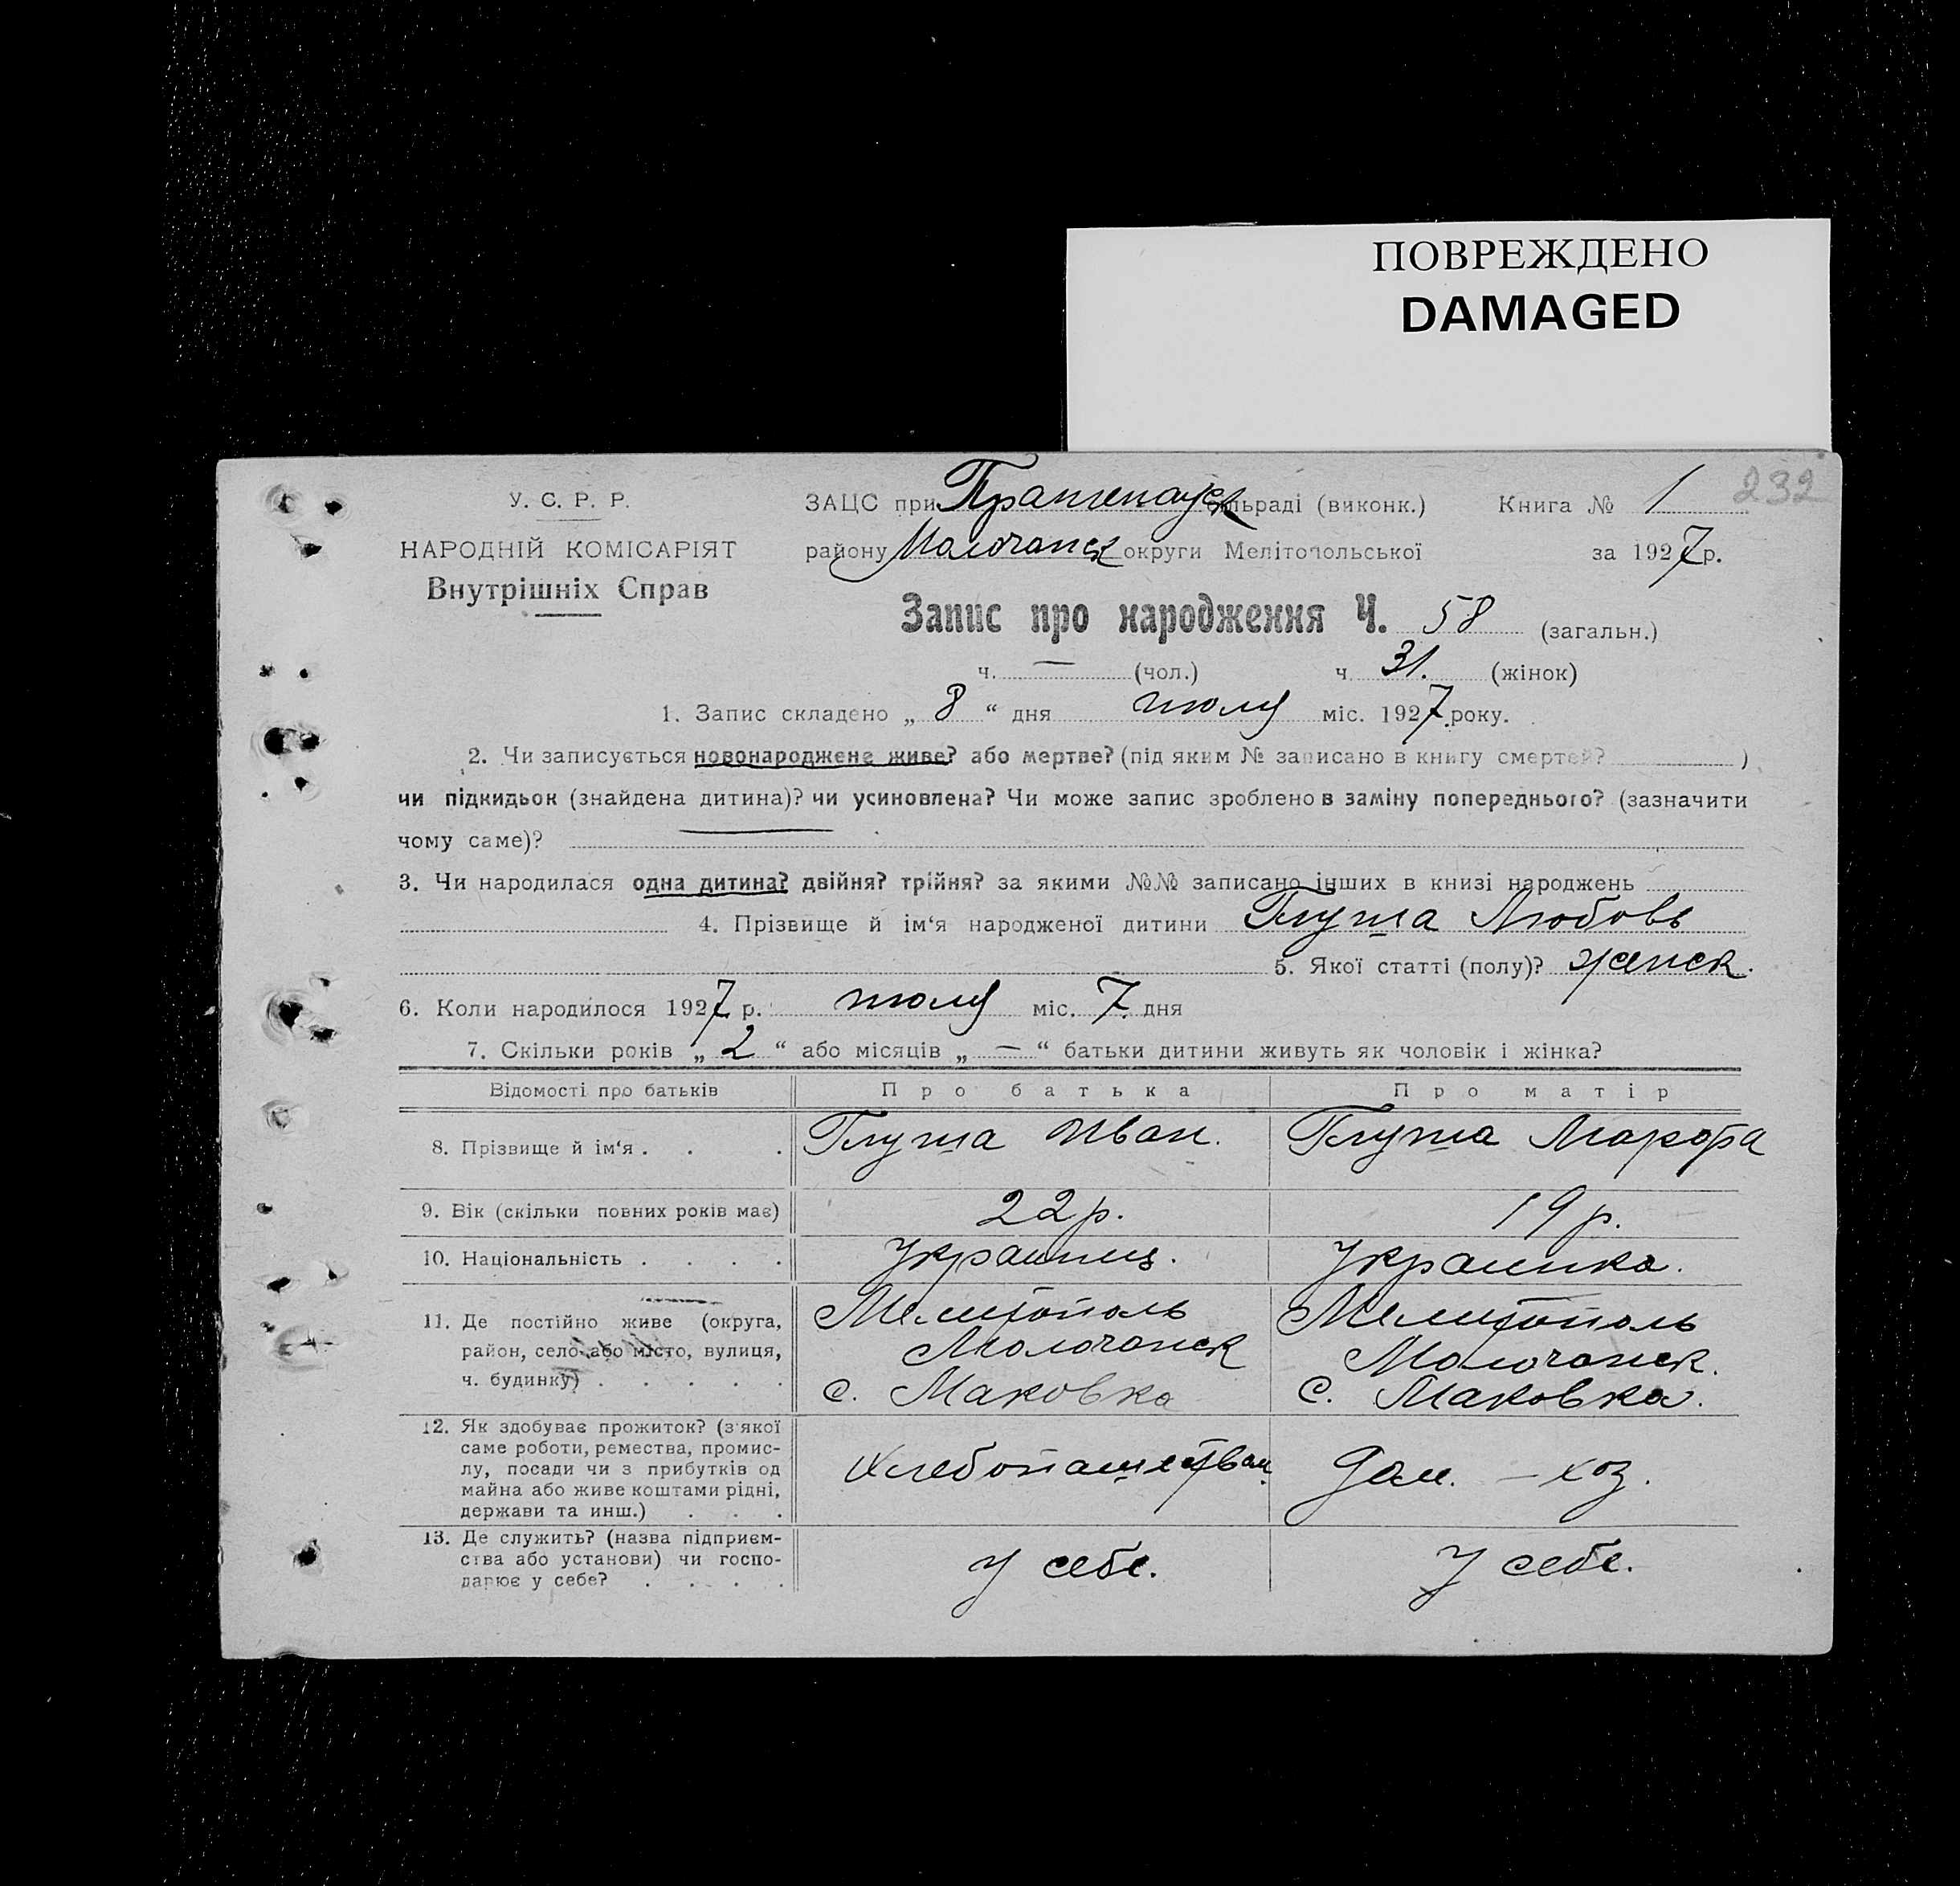 ПОВРЕЖДЕНО
DAMAGED
232
У. С. Р. Р.
НАРОДНІЙ КОМІСАРІЯТ
Внутрішніх Справ
ЗАЦС при Пришенауск сільраді (виконк.) Книга № 1
району Молочанск округи Мелітопольської за 1927 р.
Запис про народження Ч. 58 (загальн.)
ч. — (чол.) ч. 31. (жінок)
1. Запис складено „ 8 “ дня июля міс. 1927 року.
2. Чи записується новонароджене живе? або мертве? (під яким № записано в книгу смертей? )
чи підкидьок (знайдена дитина)? чи усиновлена? Чи може запис зроблено в заміну попереднього? (зазначити
чому саме)?
3. Чи народилася одна дитина? двійня? трійня? за якими №№ записано інших в книзі народжень
4. Прізвище й ім‘я народженої дитини Глуша Любовь
5. Якої статті (полу)? женск.
6. Коли народилося 1927 р. июля міс. 7 дня
7. Скільки років „ 2 “ або місяців „ — “ батьки дитини живуть як чоловік і жінка?
Відомості про батьків Про батька Про матір
8. Прізвище й ім‘я . . . Глуша Иван. Глуша Марфа
9. Вік (скільки повних років має) 22 р. 19 р.
10. Національність . . . . Украинец. Украинка.
11. Де постійно живе (округа, район, село або місто, вулиця, ч. будинку) . . . . .
Мелитополь
Молочанск
с. Маковка
Мелитополь
Молочанск.
с. Маковка.
12. Як здобуває прожиток? (з якої
саме роботи, ремества, промис-
лу, посади чи з прибутків од
майна або живе коштами рідні,
держави та инш.) . . .
Хлебопашеством
Дом. – хоз.
13. Де служить? (назва підприєм-
ства або установи) чи госпо-
дарює у себе? . . . .
У себе.
У себе.